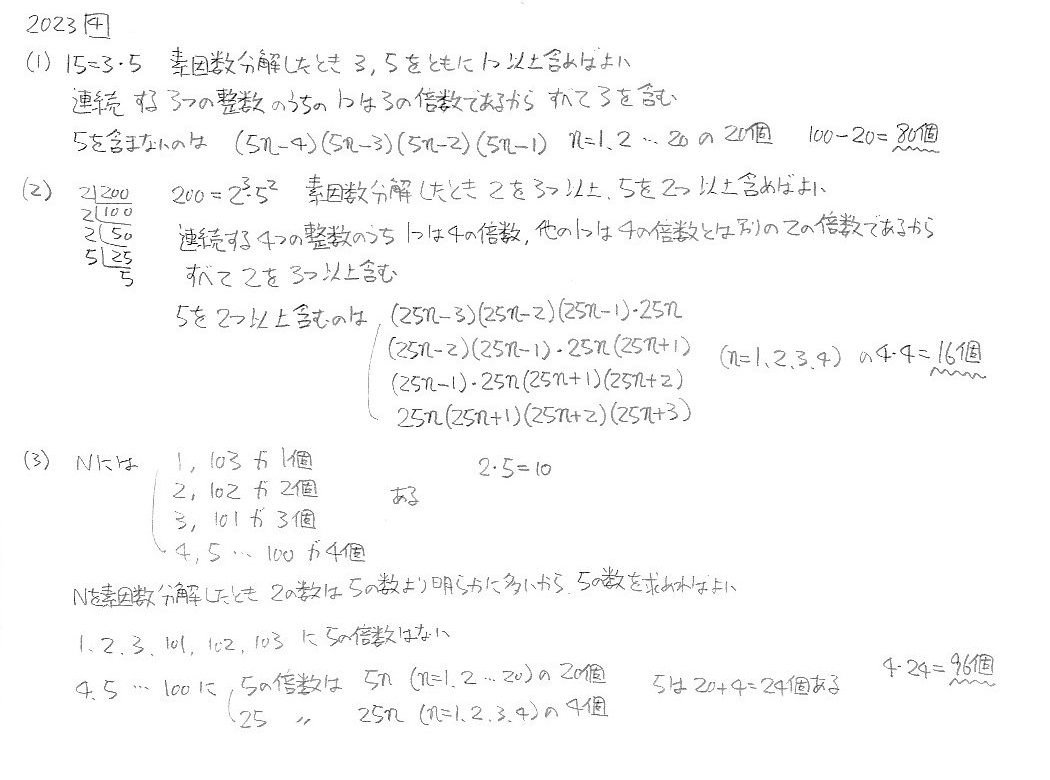 2023 4
(1) 15=3・5 素因数分解したとき 3, 5をともに1つ以上含めばよい
連続する3つの整数のうちの1つは3の倍数であるから すべて3を含む
5を含まないのは (5n-4)(5n-3)(5n-2)(5n-1) n=1, 2 … 20 の 20個 100-20=80個
(2) 2 200 200=2³・5² 素因数分解したとき 2を3つ以上, 5を2つ以上含めばよい
2 100
2 50 連続する4つの整数のうち 1つは4の倍数, 他の1つは4の倍数とは別の2の倍数であるから
5 25
5 すべて 2を3つ以上含む
5を2つ以上含むのは (25n-3)(25n-2)(25n-1)・25n
(25n-2)(25n-1)・25n(25n+1) (n=1, 2, 3, 4) の 4・4=16個
(25n-1)・25n(25n+1)(25n+2)
25n(25n+1)(25n+2)(25n+3)
(3) Nには 1, 103 が 1個 2・5=10
2, 102 が 2個 ある
3, 101 が 3個
4, 5 … 100 が 4個
Nを素因数分解したとき 2の数は5の数より明らかに多いから, 5の数を求めればよい
1, 2, 3, 101, 102, 103 に 5の倍数はない
4, 5 … 100に 5の倍数は 5n (n=1, 2 … 20)の 20個 5は 20+4=24個ある 4・24=96個
25 〃 25n (n=1, 2, 3, 4)の 4個